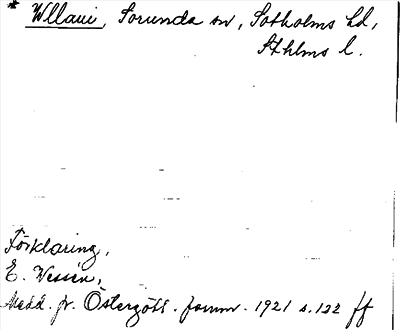 * Wllaui, Sorunda sn, Sotholms hd,
Sthlms l.
Förklaring,
E. Wessén,
Medd. fr. Östergötl. fornm. 1921 s. 122 ff